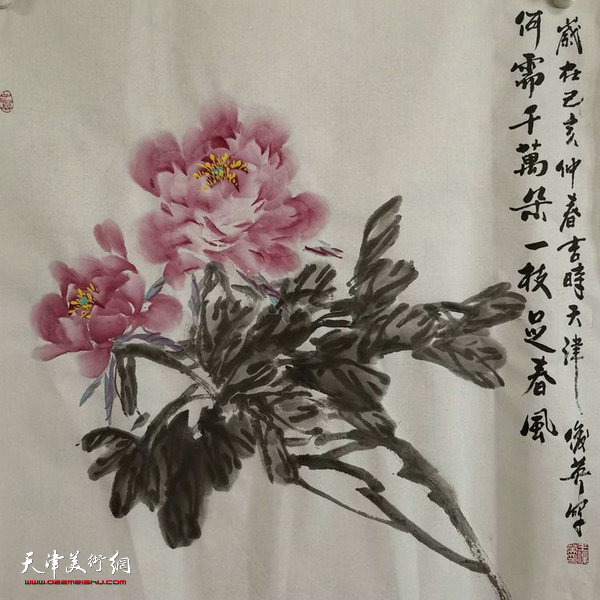 歲在己亥仲春吉時天津
何需千萬朵一枝足春風
俊英寫
天津美術網
www.022meishu.com